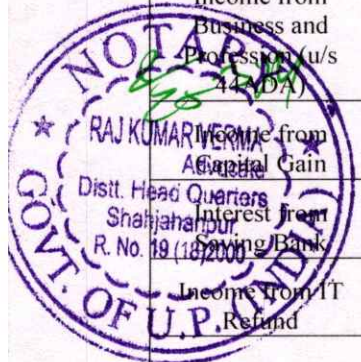 Income from
Business and
Profession (u/s
44ADA)
Income from
Capital Gain
Interest from
Saving Bank
Income from IT
Refund
NOTARY
RAJ KUMAR VERMA
Advocate
Distt. Head Quarters
Shahjahanpur
R. No. 19 (18)2000
GOVT. OF U.P. INDIA